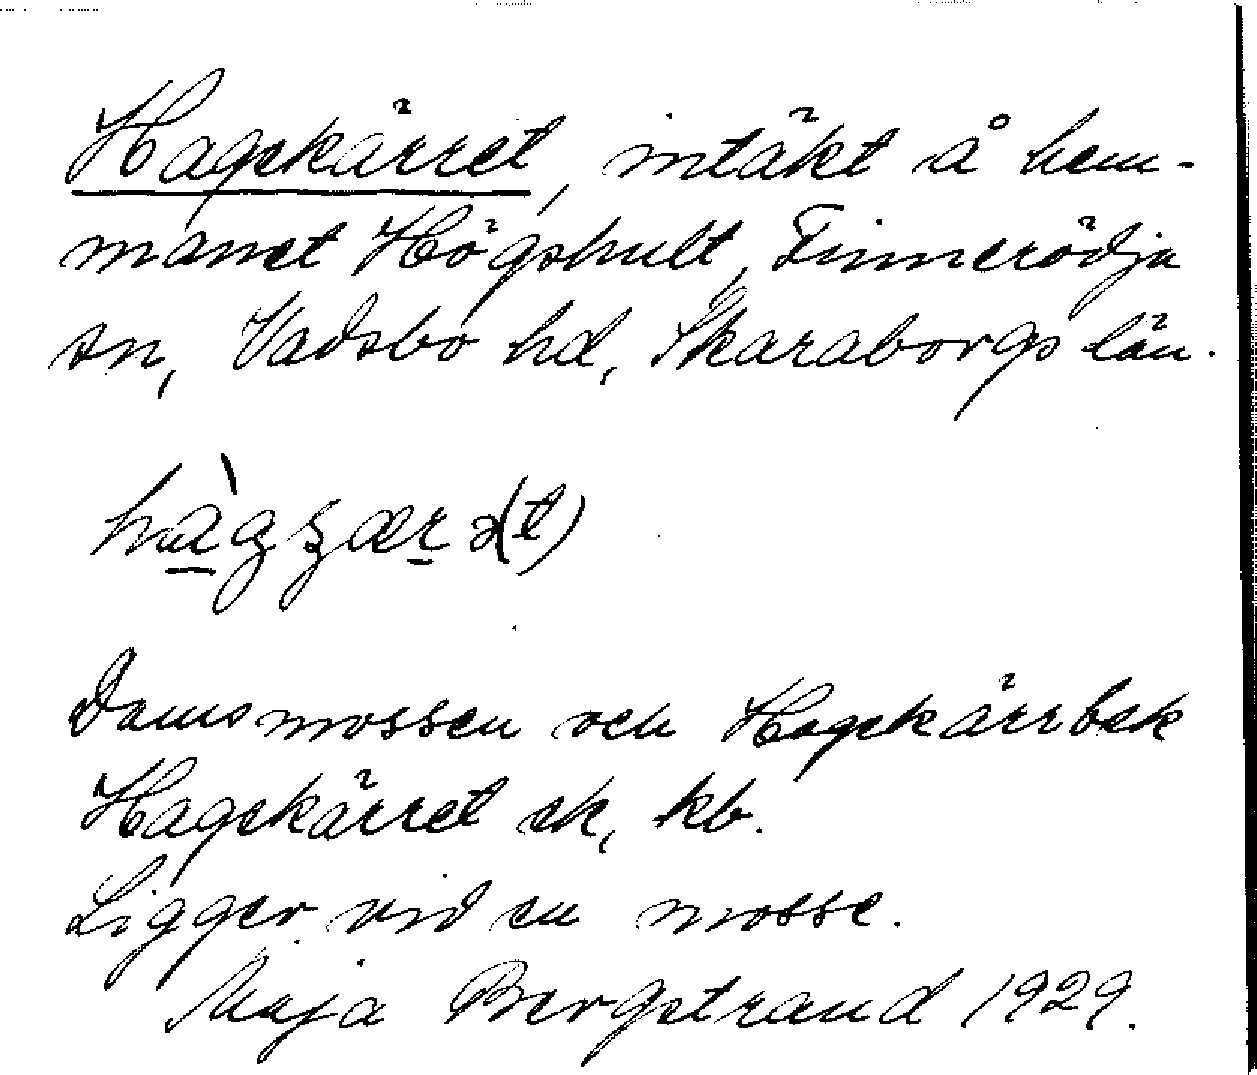 Hagekärret, intäkt å hem-
manet Högshult, Finnerödja
sn, Vadsbo hd, Skaraborgs län.
Damsmossen och Hagekärrbek
Hagekärret ek, kb.
Ligger vid en mosse.
Maja Bergstrand 1929.